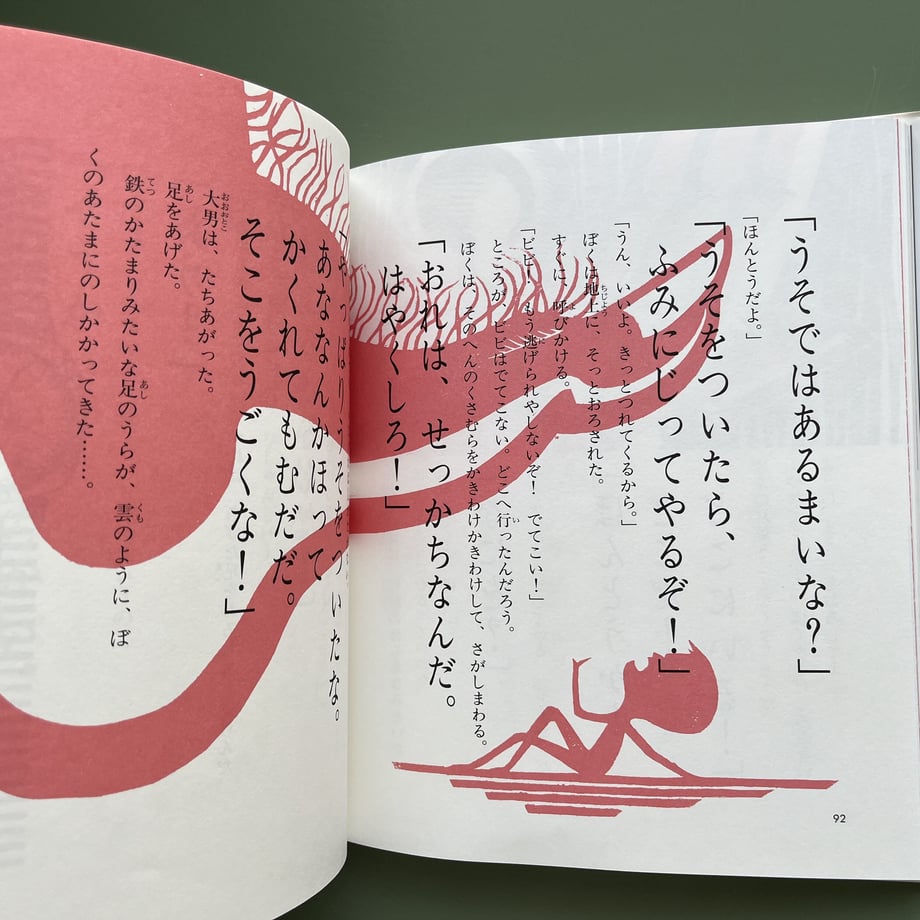 「うそではあるまいな?」
「ほんとうだよ。」
「うそをついたら、
ふみにじってやるぞ!」
「うん、いいよ。きっとつれてくるから。」
ぼくは地上に、そっとおろされた。
すぐに、呼びかける。
「ビビ! もう逃げられやしないぞ! でてこい!」
ところが、ビビはでてこない。どこへ行ったんだろう。
ぼくは、そのへんのくさむらをかきわけかきわけして、さがしまわる。
「おれは、せっかちなんだ。
はやくしろ!」
「やっぱりうそをついたな。
あななんかほって
かくれてもむだだ。
そこをうごくな!」
大男は、たちあがった。
足をあげた。
鉄のかたまりみたいな足のうらが、雲のように、ぼ
くのあたまにのしかかってきた……。
92